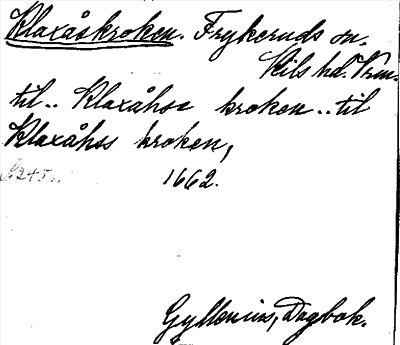 Klaxåskroken. Frykeruds sn.
Kils hd. Vrm.
til.. Klaxåhss kroken .. til
Klaxåhss kroken,
S. 245.. 1662.
Gyllenius, Dagbok.